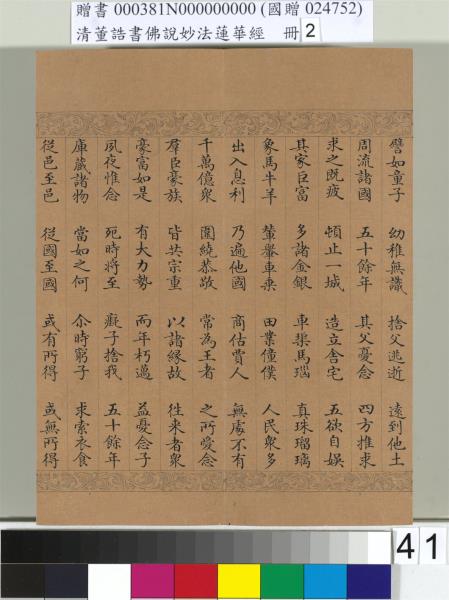 贈書 000381N000000000 (國贈 024752)
清董誥書佛說妙法蓮華經 冊 2
譬如童子 幼稚無識 捨父逃逝 遠到他土
周流諸國 五十餘年 其父憂念 四方推求
求之既疲 頓止一城 造立舍宅 五欲自娛
其家巨富 多諸金銀 車𤦲馬瑙 真珠瑠璃
象馬牛羊 輦轝車乘 田業僮僕 人民眾多
出入息利 乃遍他國 商估賈人 無處不有
千萬億眾 圍繞恭敬 常為王者 之所愛念
群臣豪族 皆共宗重 以諸緣故 往來者眾
豪富如是 有大力勢 而年朽邁 益憂念子
夙夜惟念 死時將至 癡子捨我 五十餘年
庫藏諸物 當如之何 尒時窮子 求索衣食
從邑至邑 從國至國 或有所得 或無所得
41